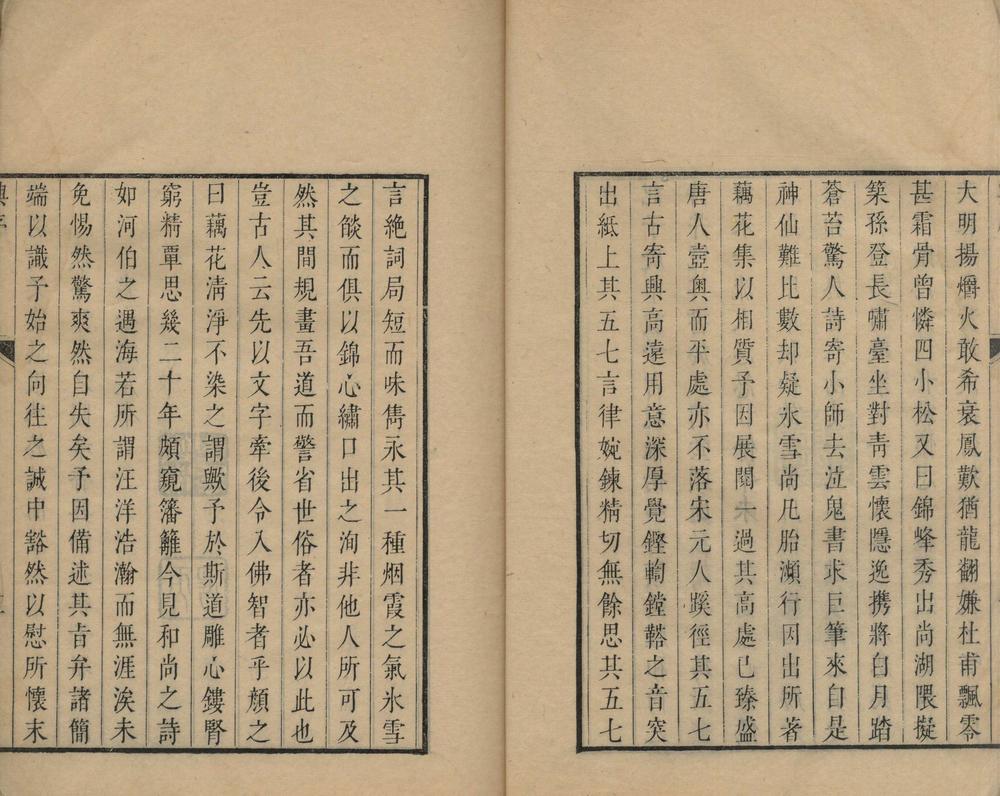 大明揚爝火敢希衰鳳歎猶龍翻嫌杜甫飄零
甚霜骨曾憐四小松又曰錦峰秀出尚湖隈擬
築孫登長嘯臺坐對靑雲懷隱逸携將白月踏
蒼苔驚人詩寄小師去泣鬼書求巨筆來自是
神仙難比數却疑氷雪尚凡胎瀕行因出所著
藕花集以相質予因展閱一過其高處已臻盛
唐人壼奥而平處亦不落宋元人蹊徑其五七
言古寄興高遠用意深厚覺鏗鞫鏜鞳之音突
出紙上其五七言律婉鍊精切無餘思其五七
言絶詞局短而味雋永其一種烟霞之氣氷雪
之燄而俱以錦心繡口出之洵非他人所可及
然其間規畫吾道而警省世俗者亦必以此也
豈古人云先以文字牽後令入佛智者乎顏之
曰藕花淸淨不染之謂歟予於斯道雕心鏤腎
窮精覃思幾二十年頗窺籓籬今見和尚之詩
如河伯之遇海若所謂汪洋浩瀚而無涯涘未
免惕然驚爽然自失矣予因備述其㫖弁諸簡
端以識予始之向徃之誠中豁然以慰所懷末